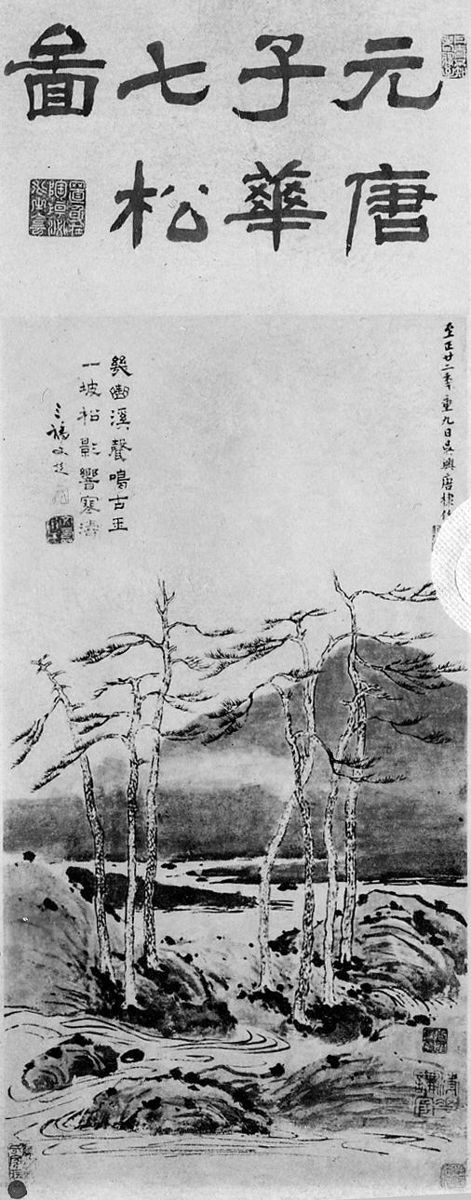 元唐
子華
七松
圖
至正廿二年重九日吳興唐棣作
幾溪聲鳴古玉
一坡松影響寒濤
三橋文彭